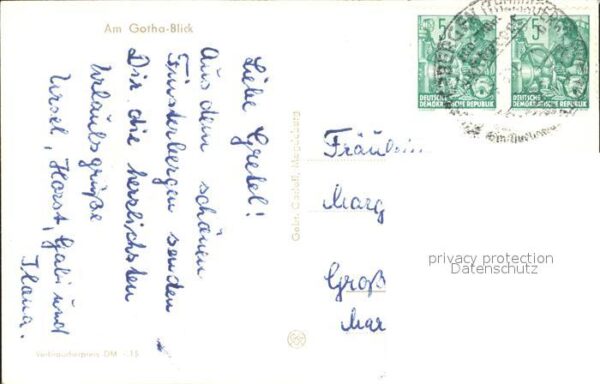 Am Gotha-Blick
Liebe Gretel!
Aus dem schönen
Finsterbergen senden
Dir die herzlichsten
Urlaubsgrüße
Ursel, Horst, Gabi und
Ilona.
Verbraucherpreis DM -.15
Gebr. Garloff, Magdeburg
5
DEUTSCHE
DEMOKRATISCHE REPUBLIK
5
DEUTSCHE
DEMOKRATISCHE REPUBLIK
Fräulein
Marg
Groß
Mar
privacy protection
Datenschutz